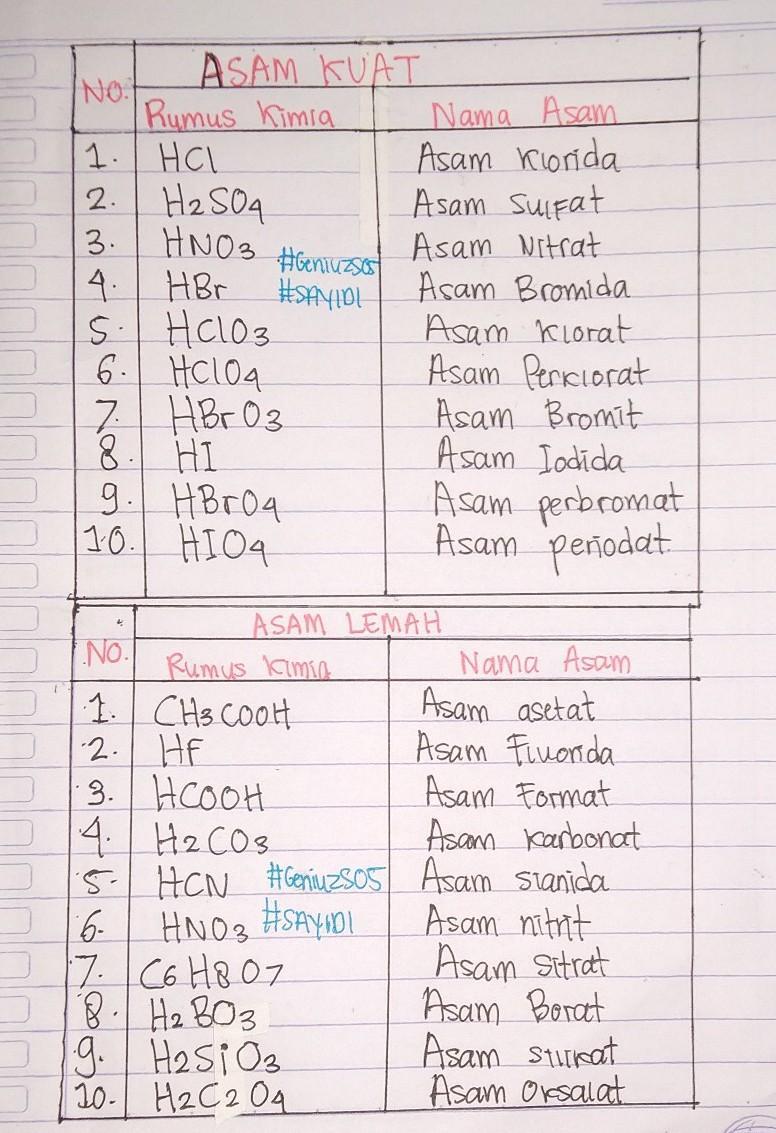 ASAM KUAT
No. Rumus Kimia Nama Asam
1. HCl Asam Klorida
2. H2SO4 Asam Sulfat
3. HNO3 Asam Nitrat
#GeniuzS05
4. HBr Asam Bromida
#SAY1D1
5. HClO3 Asam Klorat
6. HClO4 Asam Perklorat
7. HBrO3 Asam Bromit
8. HI Asam Iodida
9. HBrO4 Asam perbromat
10. HIO4 Asam periodat
ASAM LEMAH
No. Rumus Kimia Nama Asam
1. CH3COOH Asam asetat
2. HF Asam Fluorida
3. HCOOH Asam Format
4. H2CO3 Asam Karbonat
5. HCN #GeniuzS05 Asam sianida
6. HNO3 #SAY1D1 Asam nitrit
7. C6H8O7 Asam Sitrat
8. H2BO3 Asam Borat
9. H2SiO3 Asam
10. H2C2O4 Asam Oksalat